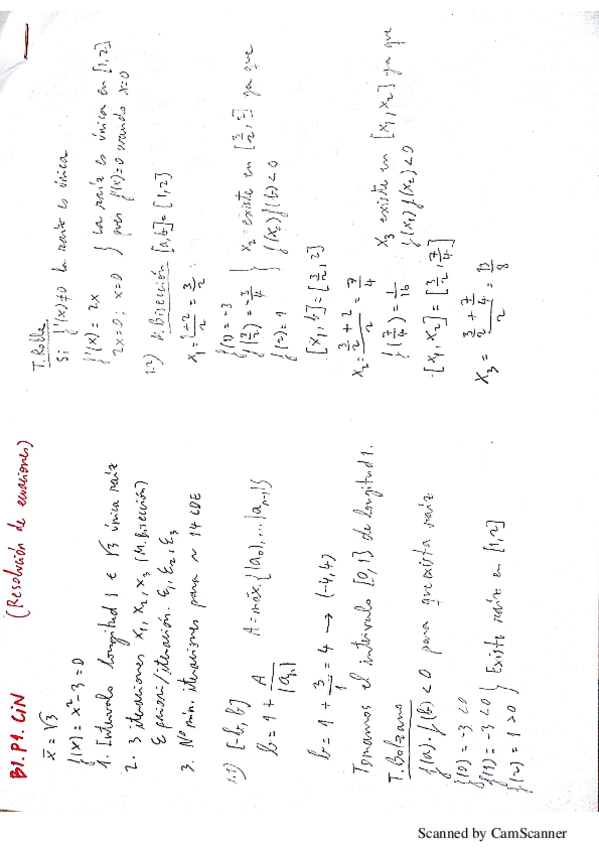 B1. P1. CiN (Resolución de ecuaciones)
x̄ = √3
f(x) = x²-3 = 0
1. Intervalo longitud 1 ∈ √3 única raíz
2. 3 iteraciones x₁, x₂, x₃ (M. Bisección)
E priori/iteración. ε₁, ε₂, ε₃
3. Nº mín. iteraciones para ~ 14 CDE
1.1) [-b, b]
b = 1 + A/|aₙ| A = máx. {|a₀|, ... |aₙ₋₁|}
b = 1 + 3/1 = 4 → (-4,4)
Tomamos el intervalo [0,1] de longitud 1.
T. Bolzano
f(a)·f(b) < 0 para que exista raíz
f(0) = -3 < 0
f(1) = -3 < 0 } Existe raíz en [1,2]
f(2) = 1 > 0
T. Rolle
Si f'(x) ≠ 0 la raíz es única
f'(x) = 2x } la raíz es única en [1,2]
2x = 0; x = 0 pues f'(x) = 0 cuando x = 0
1.2) M. Bisección [a,b] = [1,2]
x₁ = 1+2/2 = 3/2
f(1) = -3
f(3/2) = -3/4 } x₂ existe en [3/2, 2] ya que
f(2) = 1 f(x₁) f(b) < 0
[x₁, b] = [3/2, 2]
x₂ = 3/2 + 2/2 = 7/4
f(7/4) = 1/16 x₃ existe en [x₁, x₂] ya que
f(x₁) f(x₂) < 0
[x₁, x₂] = [3/2, 7/4]
x₃ = 3/2 + 7/4/2 = 13/8
Scanned by CamScanner